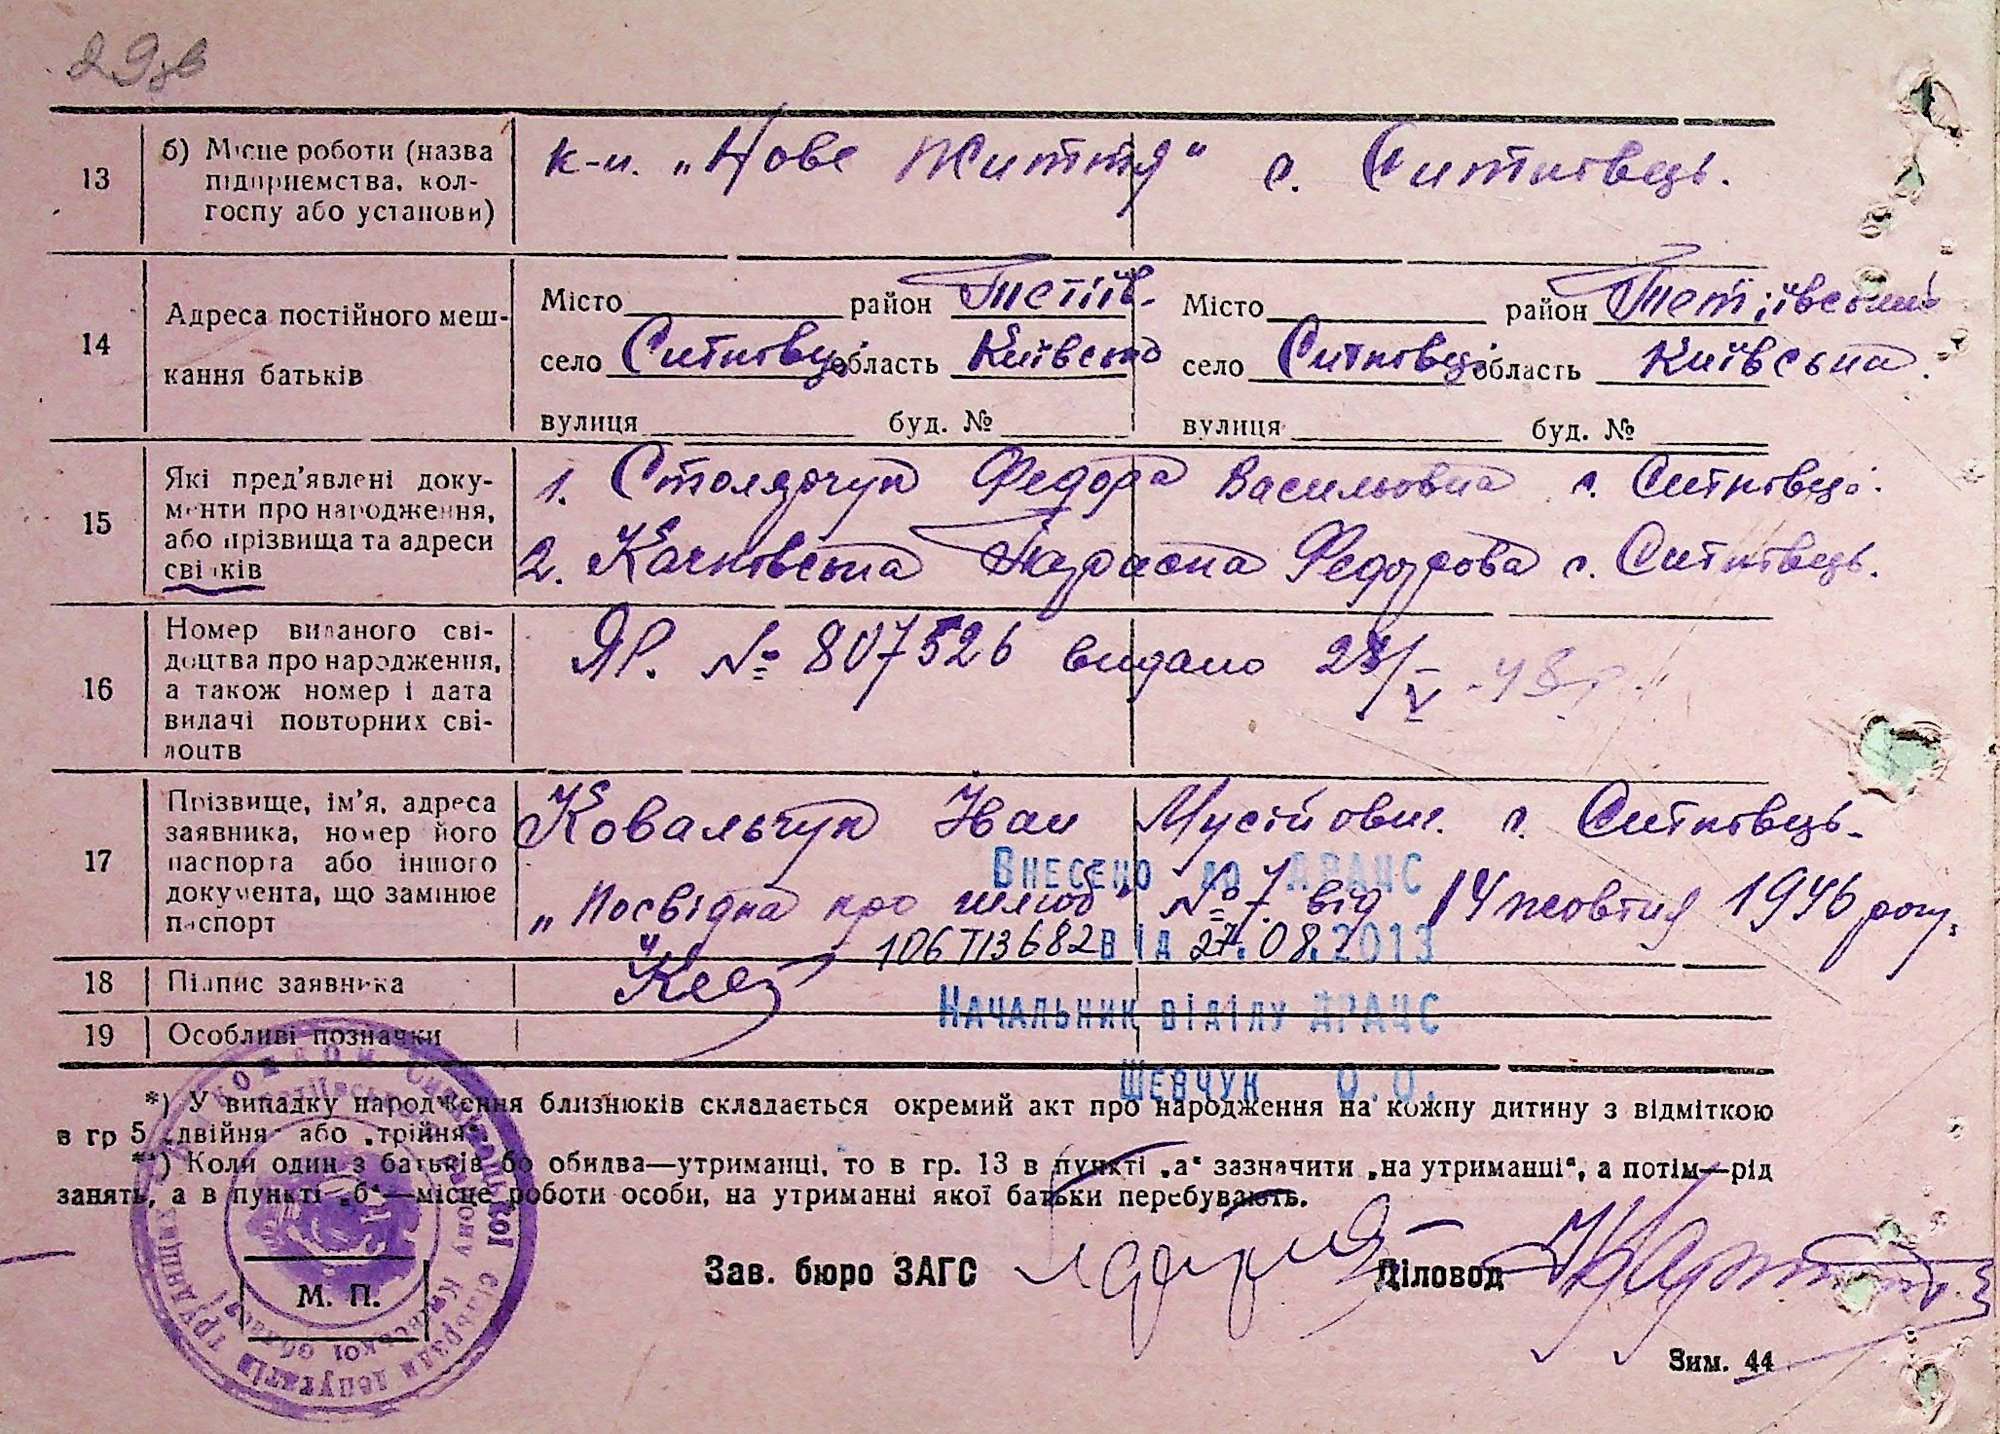 29зв
13
б) Місце роботи (назва
підприємства, кол-
госпу або установи)
к-п. „Нове Життя" с. Ситковець.
14
Адреса постійного меш-
кання батьків
Місто район Тетіїв-
село Ситковці область Київська
вулиця буд. №
Місто район Тетіївський
село Ситковці область Київська
вулиця буд. №
15
Які пред'явлені доку-
менти про народження,
або прізвища та адреси
свідків
1. Столярчук Федора Васильовна с. Ситковець.
2. Качковська Параска Федорова с. Ситковець.
16
Номер виданого сві-
доцтва про народження,
а також номер і дата
видачі повторних сві-
доцтв
ЯР. № 807526 видано 28/V -48р.
17
Прізвище, ім'я, адреса
заявника, номер його
паспорта або іншого
документа, що замінює
паспорт
Ковальчук Іван Мусійович. с. Ситковець-
„Посвідка про шлюб" № 7. від 14 жовтня 1946 року.
Внесено до ДРАЦС
106713682 від 27.08.2013
Начальник відділу ДРАЦС
Шевчук О.О.
18
Підпис заявника
19
Особливі позначки
*) У випадку народження близнюків складається окремий акт про народження на кожну дитину з відміткою
в гр 5 „двійня" або „трійня".
**) Коли один з батьків бо обидва—утриманці, то в гр. 13 в пункті „а" зазначити „на утриманці", а потім—рід
занять, а в пункті „б"—місце роботи особи, на утриманні якої батьки перебувають.
М. П.
Зав. бюро ЗАГС
Діловод
Зим. 44